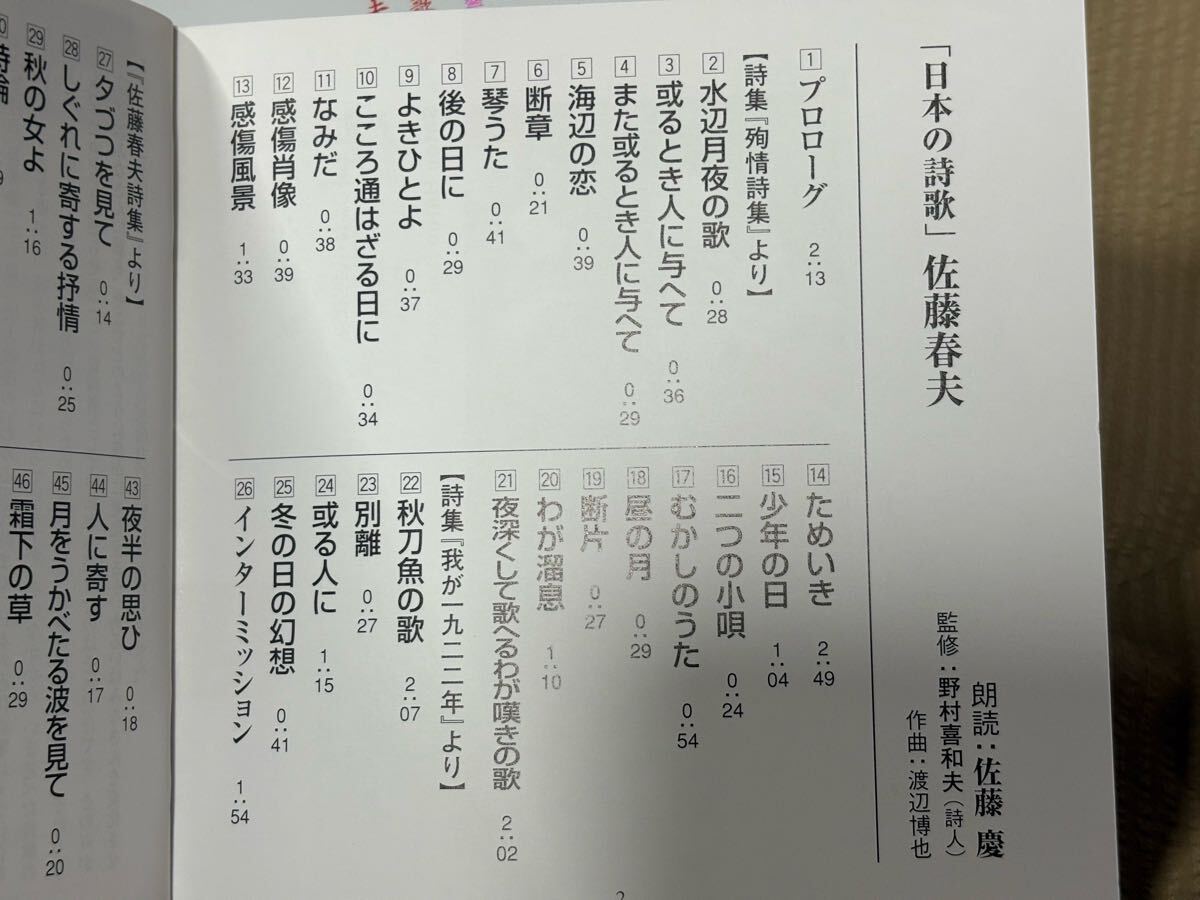 「日本の詩歌」佐藤春夫
朗読：佐藤 慶
監修：野村喜和夫（詩人）
作曲：渡辺博也
1 プロローグ 2：13
【詩集『殉情詩集』より】
2 水辺月夜の歌 0：28
3 或るとき人に与へて 0：36
4 また或るとき人に与へて 0：29
5 海辺の恋 0：39
6 断章 0：21
7 琴うた 0：41
8 後の日に 0：29
9 よきひとよ 0：37
10 こころ通はざる日に 0：34
11 なみだ 0：38
12 感傷肖像 0：39
13 感傷風景 1：33
14 ためいき 2：49
15 少年の日 1：04
16 二つの小唄 0：24
17 むかしのうた 0：54
18 昼の月 0：29
19 断片 0：27
20 わが溜息 1：10
21 夜深くして歌へるわが嘆きの歌 2：02
【詩集『我が一九二二年』より】
22 秋刀魚の歌 2：07
23 別離 0：27
24 或る人に 1：15
25 冬の日の幻想 0：41
26 インターミッション 1：54
【『佐藤春夫詩集』より】
27 夕づつを見て 0：14
28 しぐれに寄する抒情 0：25
29 秋の女よ 1：16
43 夜半の思ひ 0：18
44 人に寄す 0：17
45 月をうかべたる波を見て 0：20
46 霜下の草 0：29